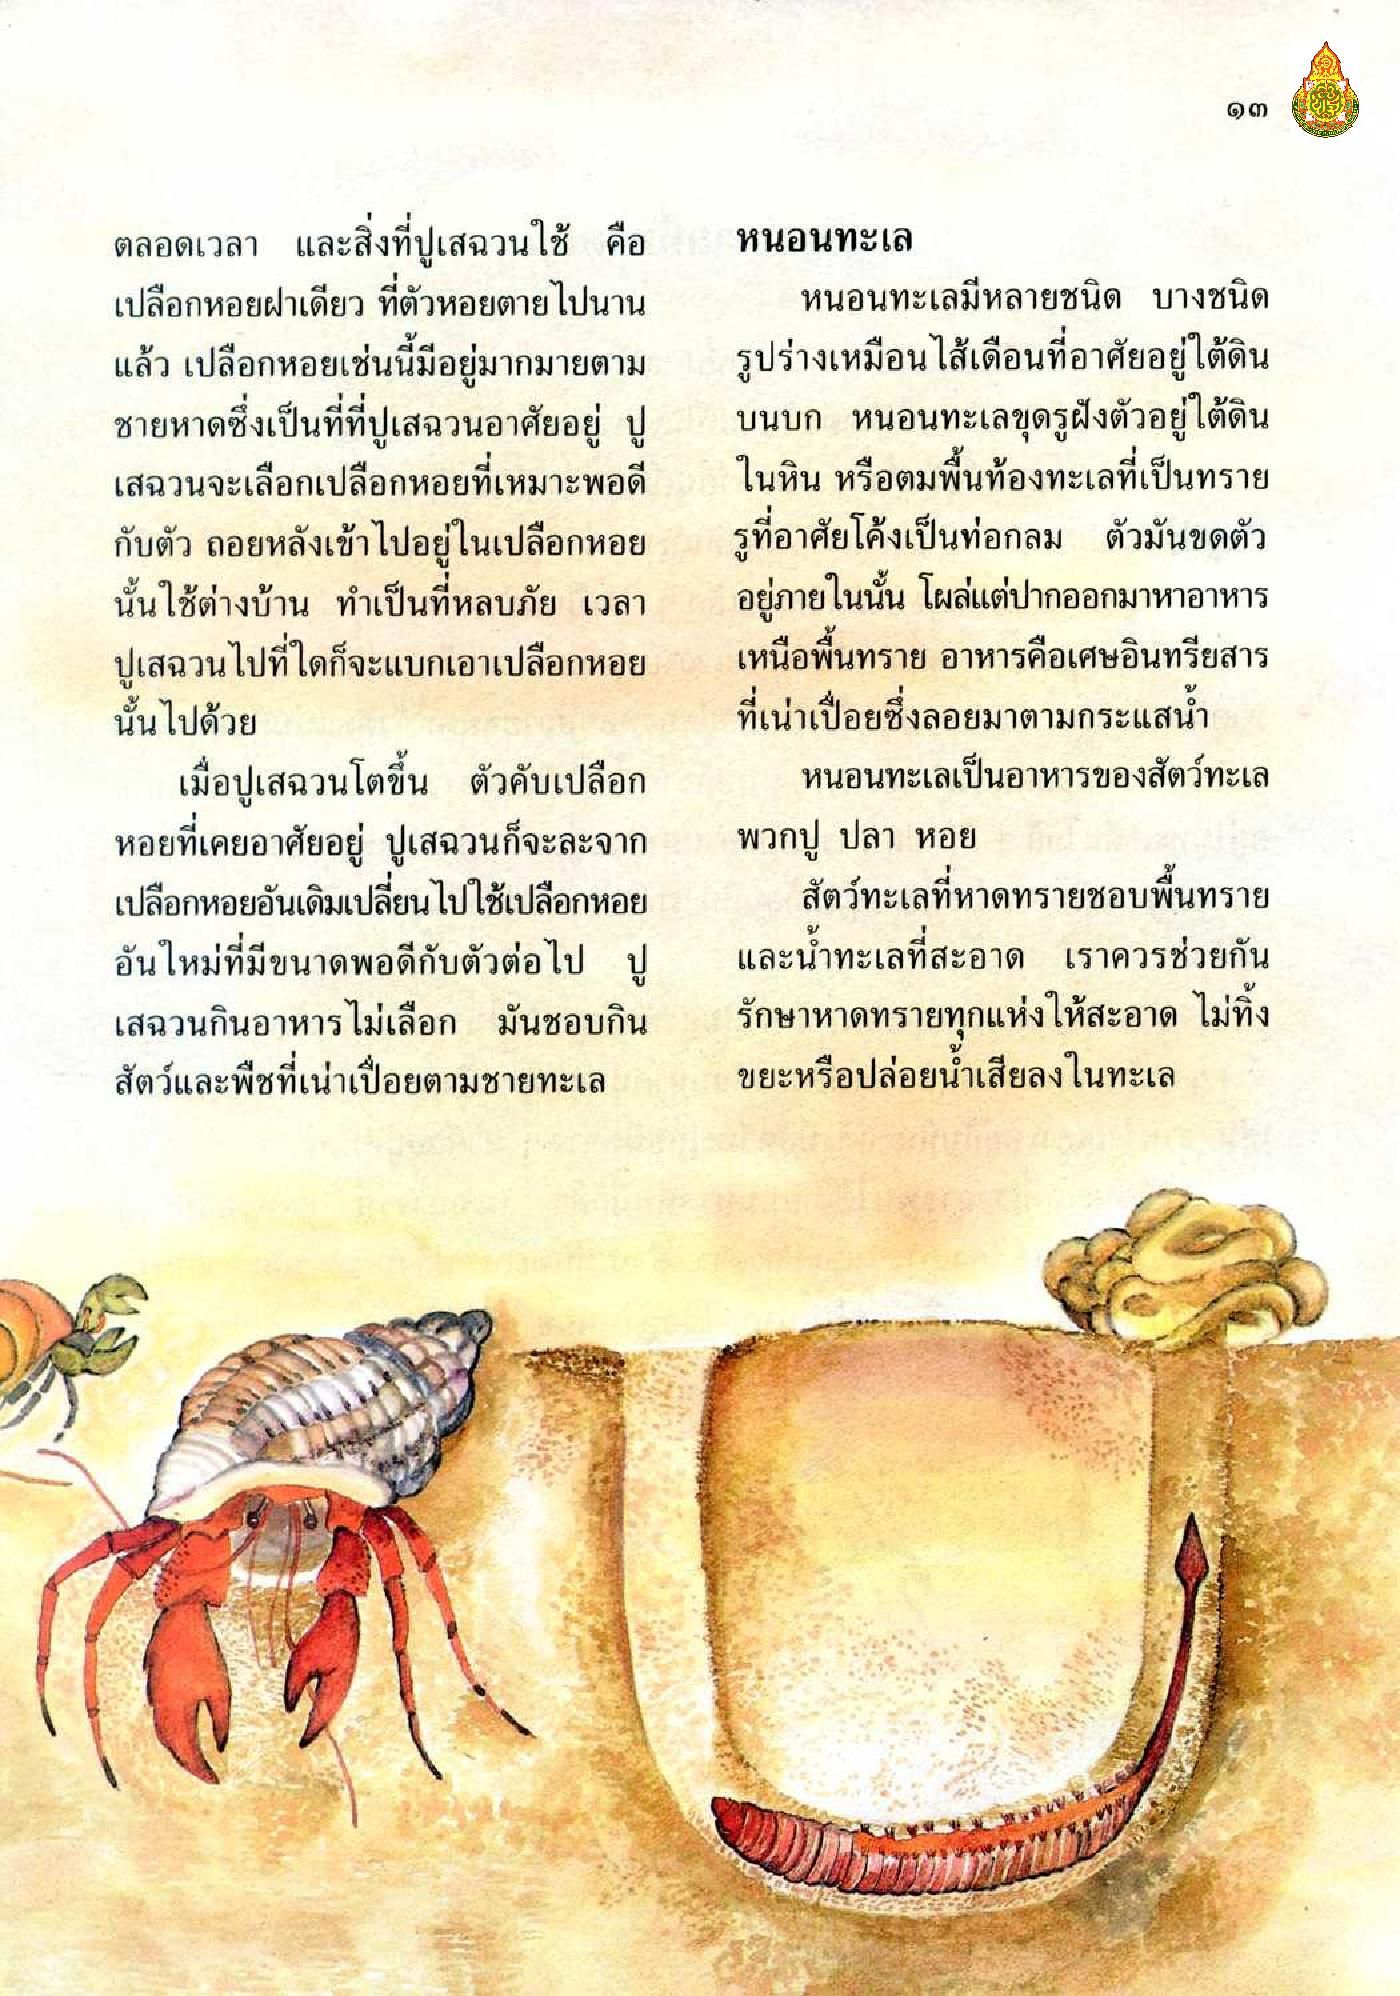 ๑๓
ตลอดเวลา และสิ่งที่ปูเสฉวนใช้ คือ
เปลือกหอยฝาเดียว ที่ตัวหอยตายไปนาน
แล้ว เปลือกหอยเช่นนี้มีอยู่มากมายตาม
ชายหาดซึ่งเป็นที่ที่ปูเสฉวนอาศัยอยู่ ปู
เสฉวนจะเลือกเปลือกหอยที่เหมาะพอดี
กับตัว ถอยหลังเข้าไปอยู่ในเปลือกหอย
นั้นใช้ต่างบ้าน ทำเป็นที่หลบภัย เวลา
ปูเสฉวนไปที่ใดก็จะแบกเอาเปลือกหอย
นั้นไปด้วย
เมื่อปูเสฉวนโตขึ้น ตัวคับเปลือก
หอยที่เคยอาศัยอยู่ ปูเสฉวนก็จะละจาก
เปลือกหอยอันเดิมเปลี่ยนไปใช้เปลือกหอย
อันใหม่ที่มีขนาดพอดีกับตัวต่อไป ปู
เสฉวนกินอาหารไม่เลือก มันชอบกิน
สัตว์และพืชที่เน่าเปื่อยตามชายทะเล
หนอนทะเล
หนอนทะเลมีหลายชนิด บางชนิด
รูปร่างเหมือนไส้เดือนที่อาศัยอยู่ใต้ดิน
บนบก หนอนทะเลขุดรูฝังตัวอยู่ใต้ดิน
ในหิน หรือตมพื้นท้องทะเลที่เป็นทราย
รูที่อาศัยโค้งเป็นท่อกลม ตัวมันขดตัว
อยู่ภายในนั้น โผล่แต่ปากออกมาหาอาหาร
เหนือพื้นทราย อาหารคือเศษอินทรียสาร
ที่เน่าเปื่อยซึ่งลอยมาตามกระแสน้ำ
หนอนทะเลเป็นอาหารของสัตว์ทะเล
พวกปู ปลา หอย
สัตว์ทะเลที่หาดทรายชอบพื้นทราย
และน้ำทะเลที่สะอาด เราควรช่วยกัน
รักษาหาดทรายทุกแห่งให้สะอาด ไม่ทิ้ง
ขยะหรือปล่อยน้ำเสียลงในทะเล